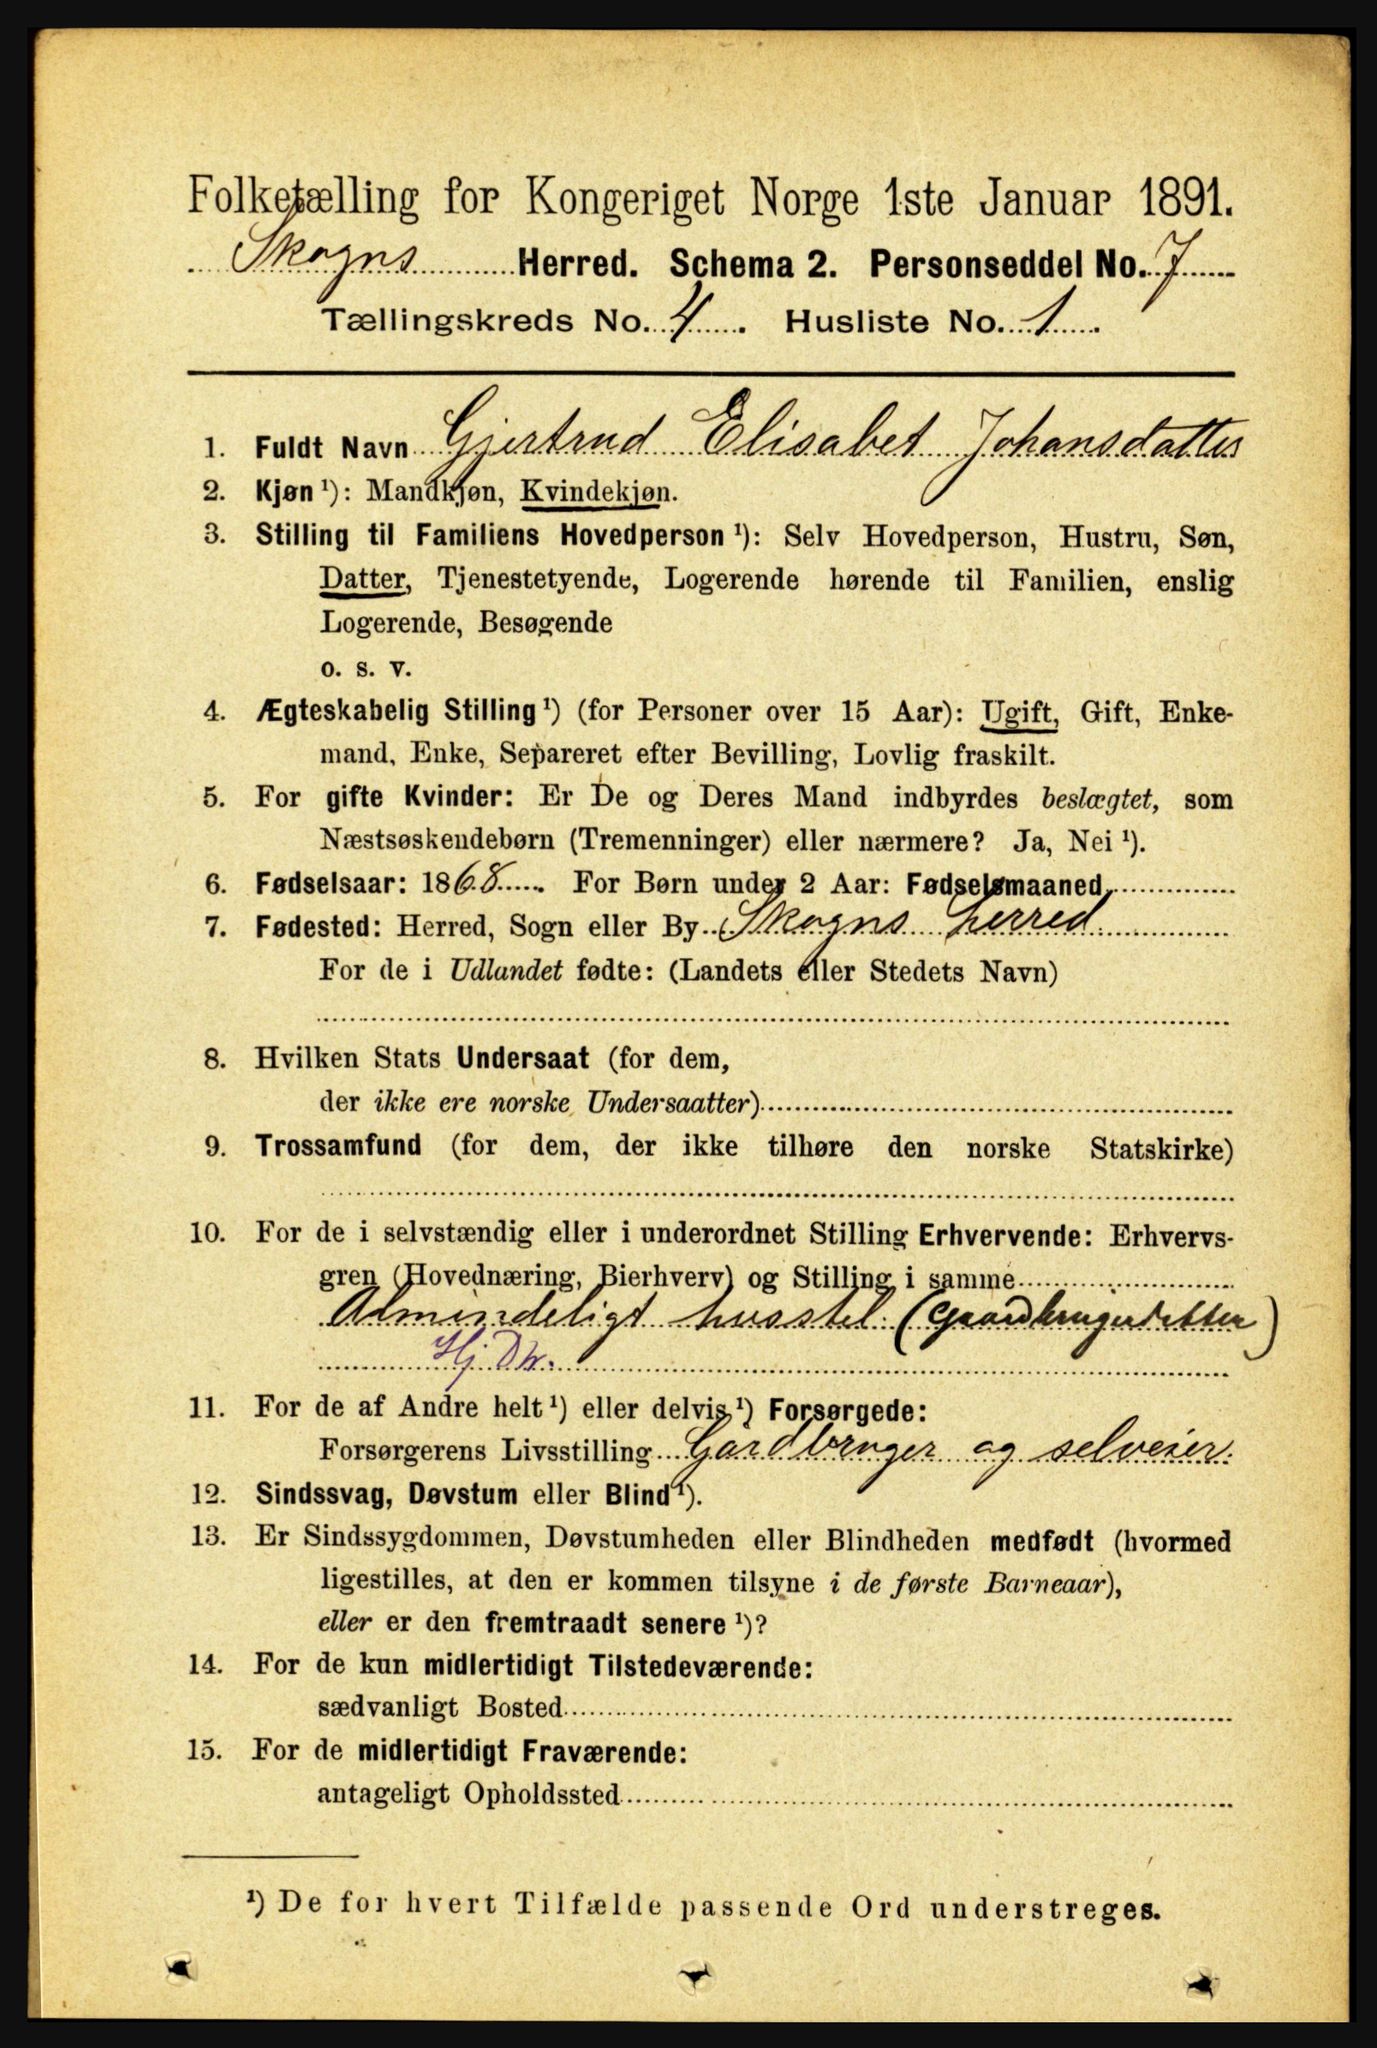 Folketælling for Kongeriget Norge 1ste Januar 1891.
Skogns Herred. Schema 2. Personseddel No. 7
Tællingskreds No. 4. Husliste No. 1.
1. Fuldt Navn Gjertrud Elisabet Johansdatter
2. Kjøn ¹): Mandkjøn, Kvindekjøn.
3. Stilling til Familiens Hovedperson ¹): Selv Hovedperson, Hustru, Søn,
Datter, Tjenestetyende, Logerende hørende til Familien, enslig
Logerende, Besøgende
o. s. v.
4. Ægteskabelig Stilling ¹) (for Personer over 15 Aar): Ugift, Gift, Enke-
mand, Enke, Separeret efter Bevilling, Lovlig fraskilt.
5. For gifte Kvinder: Er De og Deres Mand indbyrdes beslægtet, som
Næstsøskendebørn (Tremenninger) eller nærmere? Ja, Nei ¹).
6. Fødselsaar: 1868. For Børn under 2 Aar: Fødselsmaaned
7. Fødested: Herred, Sogn eller By Skogns herred
For de i Udlandet fødte: (Landets eller Stedets Navn)
8. Hvilken Stats Undersaat (for dem,
der ikke ere norske Undersaatter)
9. Trossamfund (for dem, der ikke tilhøre den norske Statskirke)
10. For de i selvstændig eller i underordnet Stilling Erhvervende: Erhvervs-
gren (Hovednæring, Bierhverv) og Stilling i samme
Almindeligt husstel (Gaardbrugerdatter)
Hj. Dtr.
11. For de af Andre helt ¹) eller delvis ¹) Forsørgede:
Forsørgerens Livsstilling Gardbruger og selveier.
12. Sindssvag, Døvstum eller Blind ¹).
13. Er Sindssygdommen, Døvstumheden eller Blindheden medfødt (hvormed
ligestilles, at den er kommen tilsyne i de første Barneaar),
eller er den fremtraadt senere ¹)?
14. For de kun midlertidigt Tilstedeværende:
sædvanligt Bosted
15. For de midlertidigt Fraværende:
antageligt Opholdssted
¹) De for hvert Tilfælde passende Ord understreges.